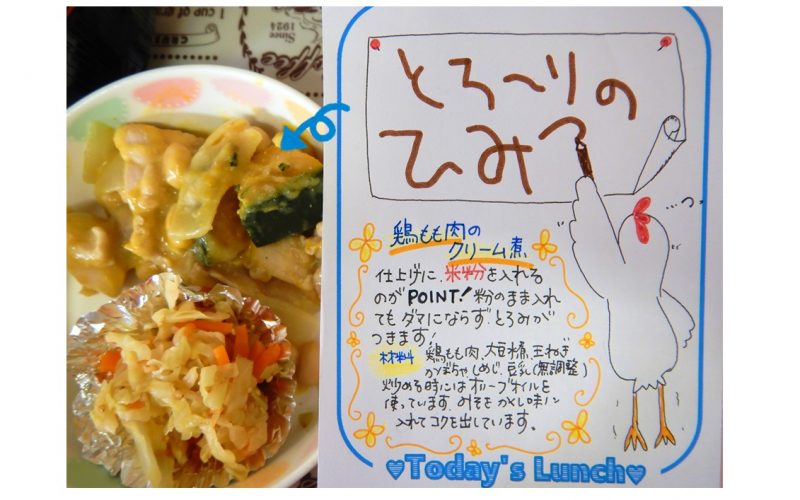 Since
1924
1 CUP OF
Coffee
とろ〜りの
ひみつ
鶏もも肉の
クリーム煮
仕上げに、米粉を入れる
のがPOINT!粉のまま入れ
てもダマにならず、とろみが
つきます!
材料 鶏もも肉、大豆水煮、玉ねぎ
かぼちゃ、しめじ、豆乳(無調整)
炒める時にはオリーブオイルを
使っています。みそをかくし味に
入れてコクを出しています。
♥Today's Lunch♥